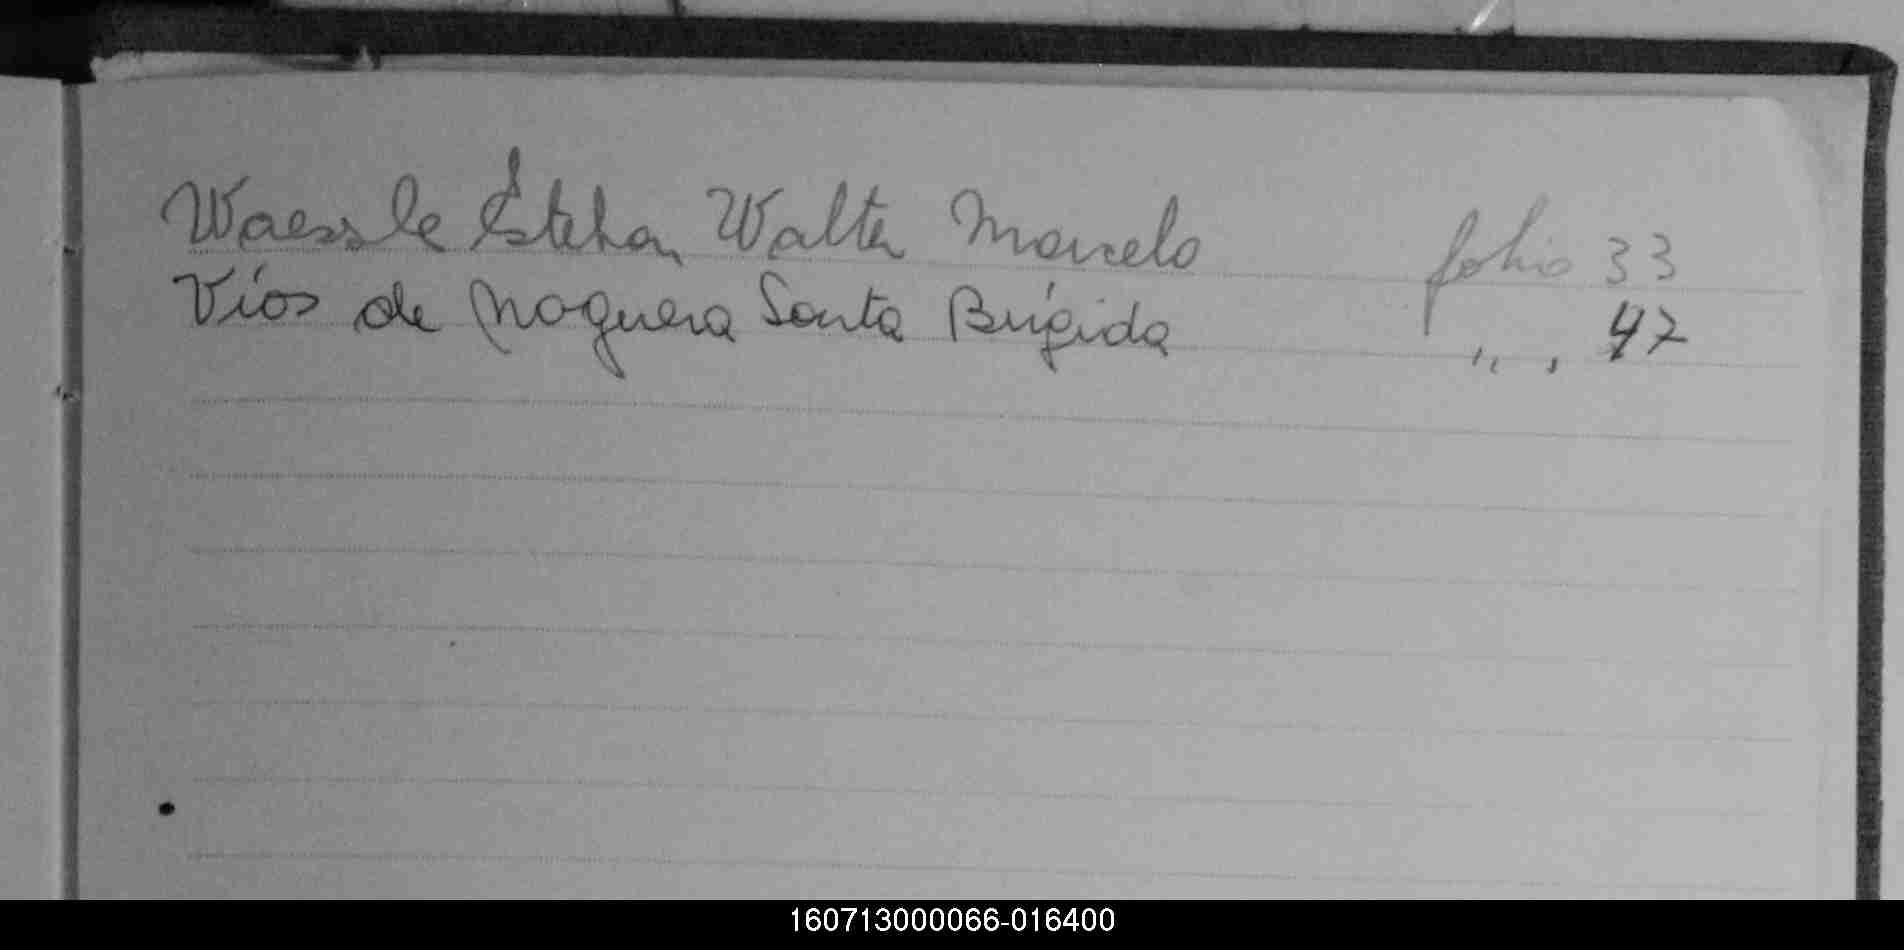 Waessle Esteban Walter Marcelo folio 33
Víos de Noguera Santa Brígida " , 47
160713000066-016400